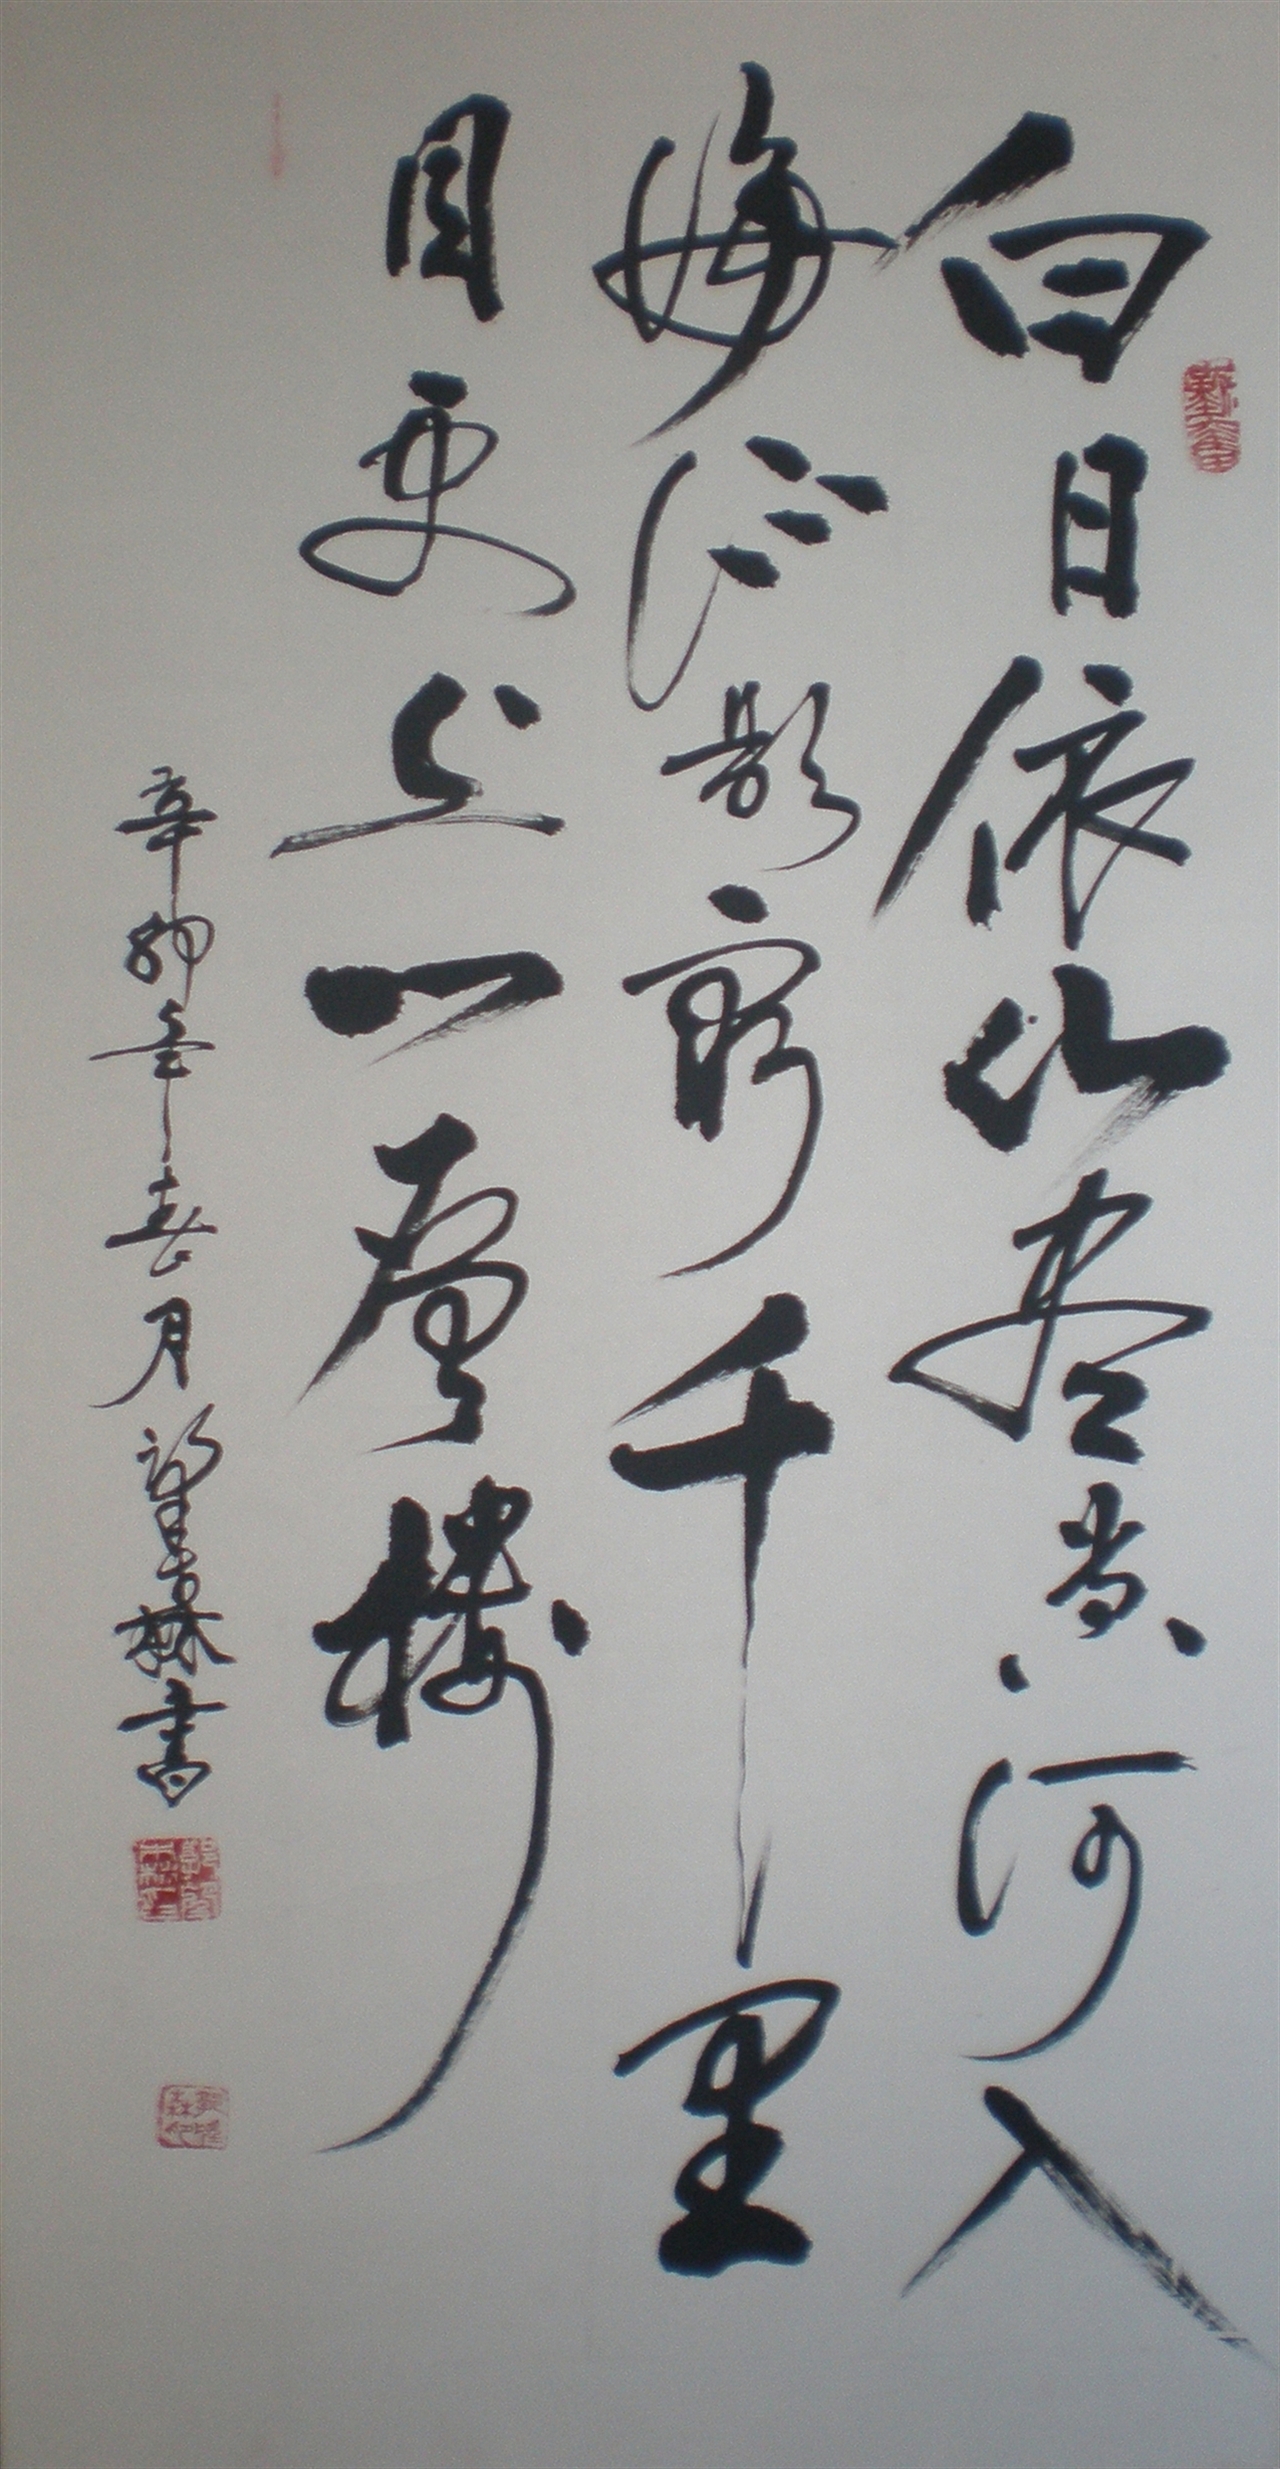 白日依山尽黄河入
海流欲穷千里
目更上一层楼
辛卯年春月 森书